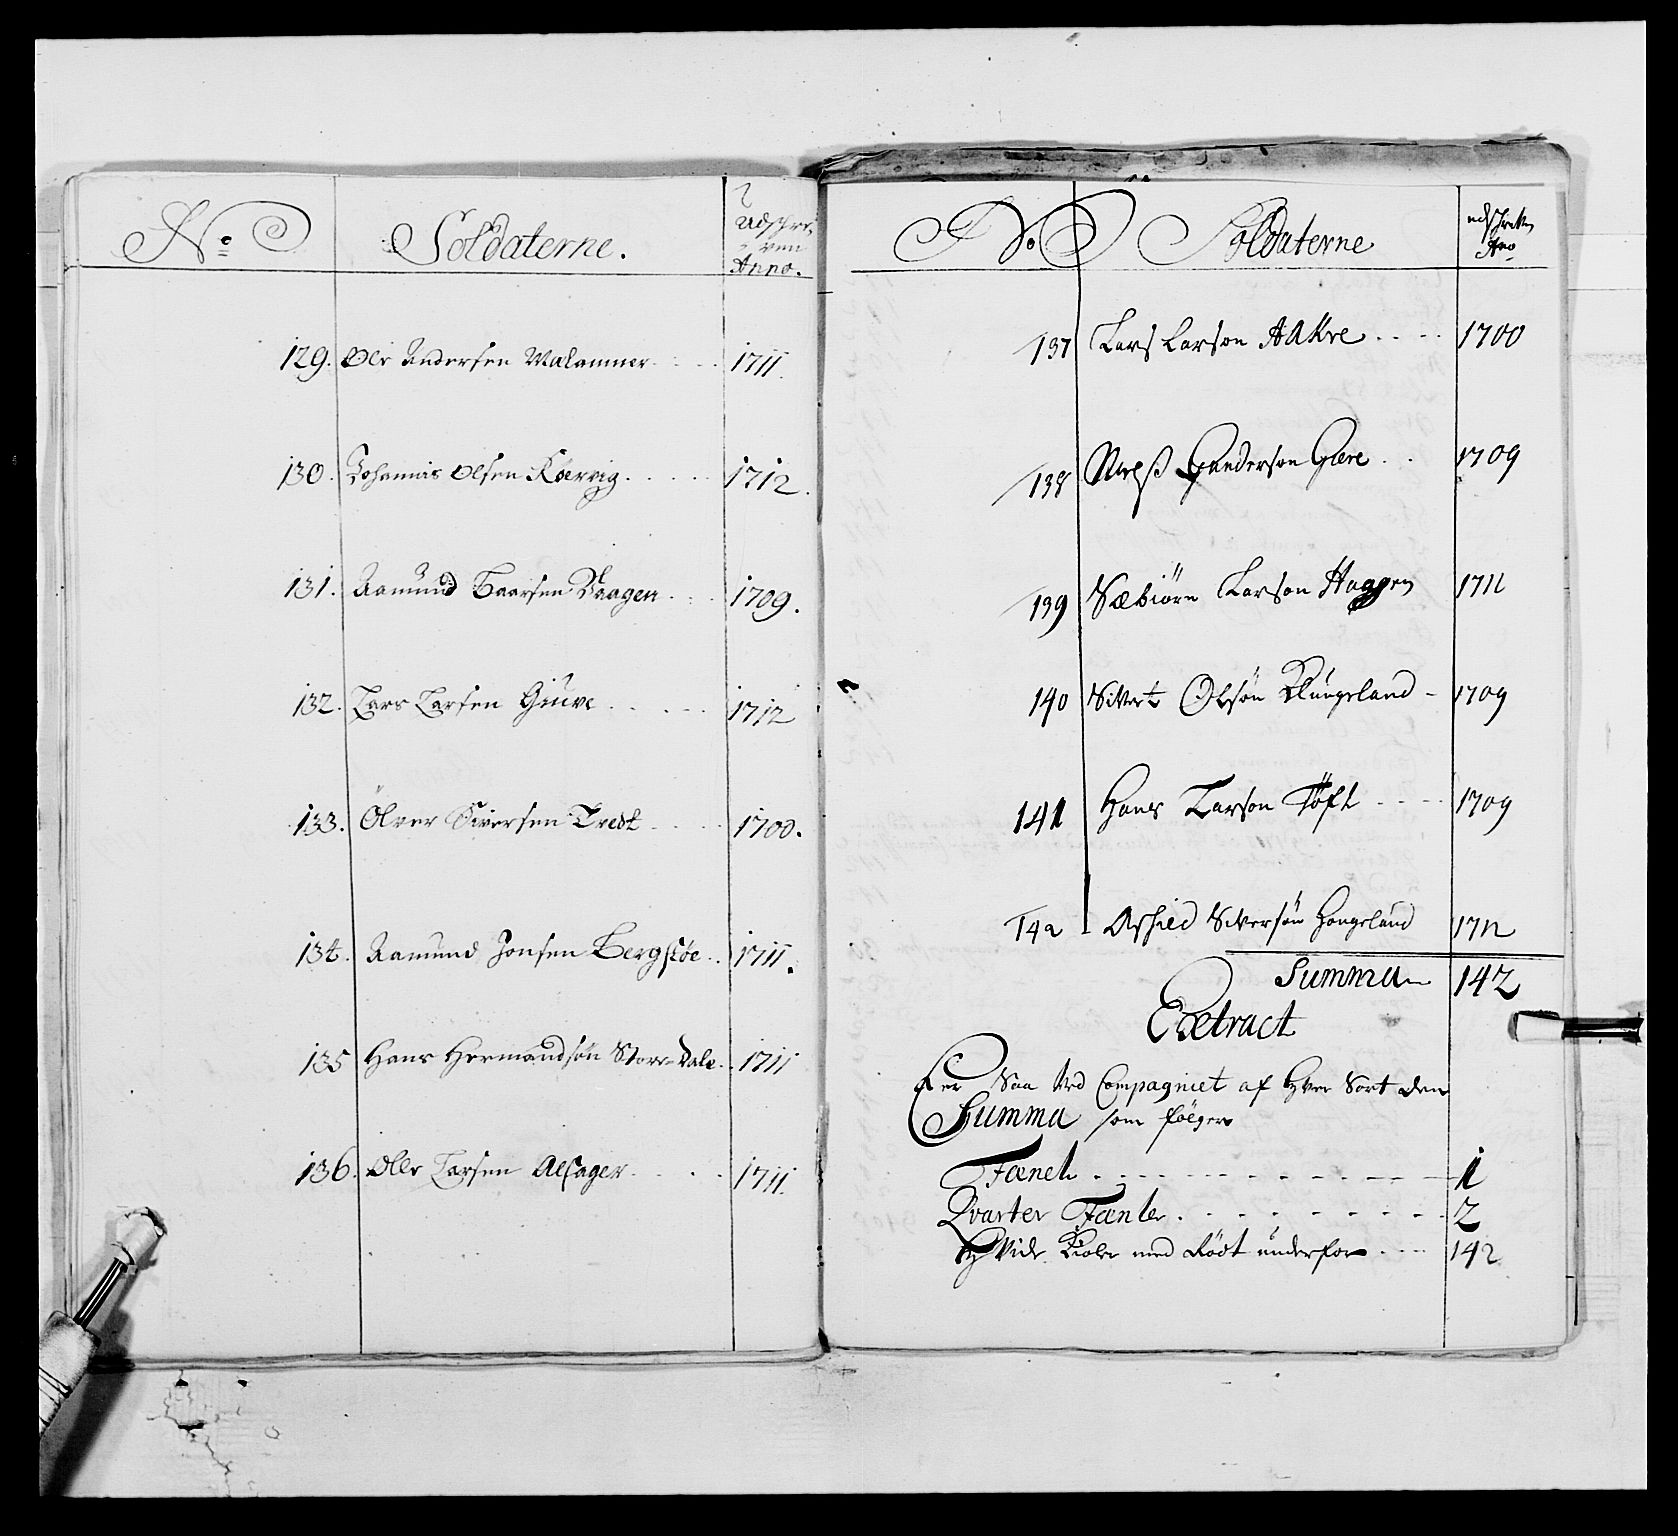 No. Soldaterne. Udschre
ven
Anno.
129. Ole Andersen Malamner 1711.
130. Johannis Olsen Kiervig 1712.
131. Aamund Baarsen Vaagen 1709.
132. Lars Larsen Giuve 1712
133. Ölver Siversen Tredt 1700.
134. Aamund Jonsen Bergstøe 1711.
135 Hans Hermandsön Storre Dale 1711
136. Olle Larsen Alsager 1711.
No Soldaterne udschreven
Ano
137 Lars Larson AAkre 1700
138 Gunderson Giere 1709
139 Sæbiörn Larson Haggen 1711
140 Sivert Olsön Klungeland 1709
141 Hans Larson Töft 1709
142 Siversön Hougeland 1712
Summa 142
Extract
Er Saa Ved Compagniet af Hver Sort den
Summa som følger
Fæneh 1
Qvarter Fænler 2
Hvide Kiole med Rödt underfor 142